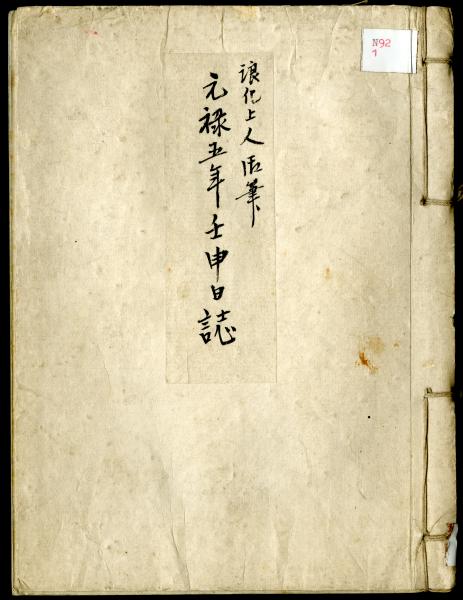 浪化上人御筆
元禄五年壬申日誌
N92
1